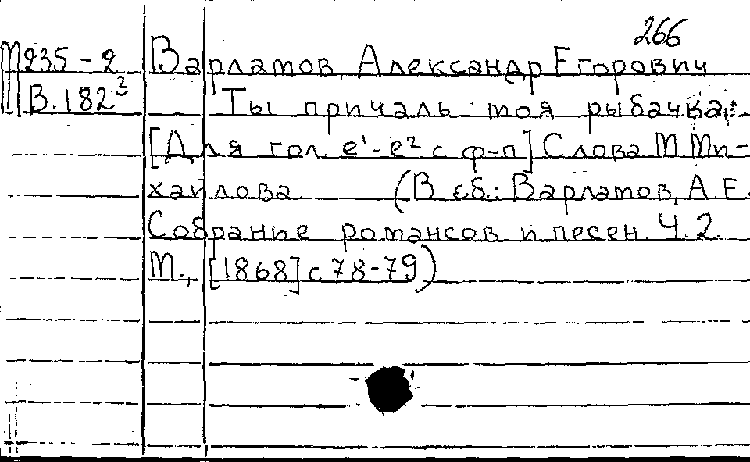 266
М235-2 Варламов, Александр Егорович
В.182³ Ты причаль моя рыбачка:
[Для гол. e¹-e² с ф-п] Слова М Ми-
хаилова (В сб.: Варламов, А Е.
Собрание романсов и песен Ч.2.
М., [1868] с 78-79)